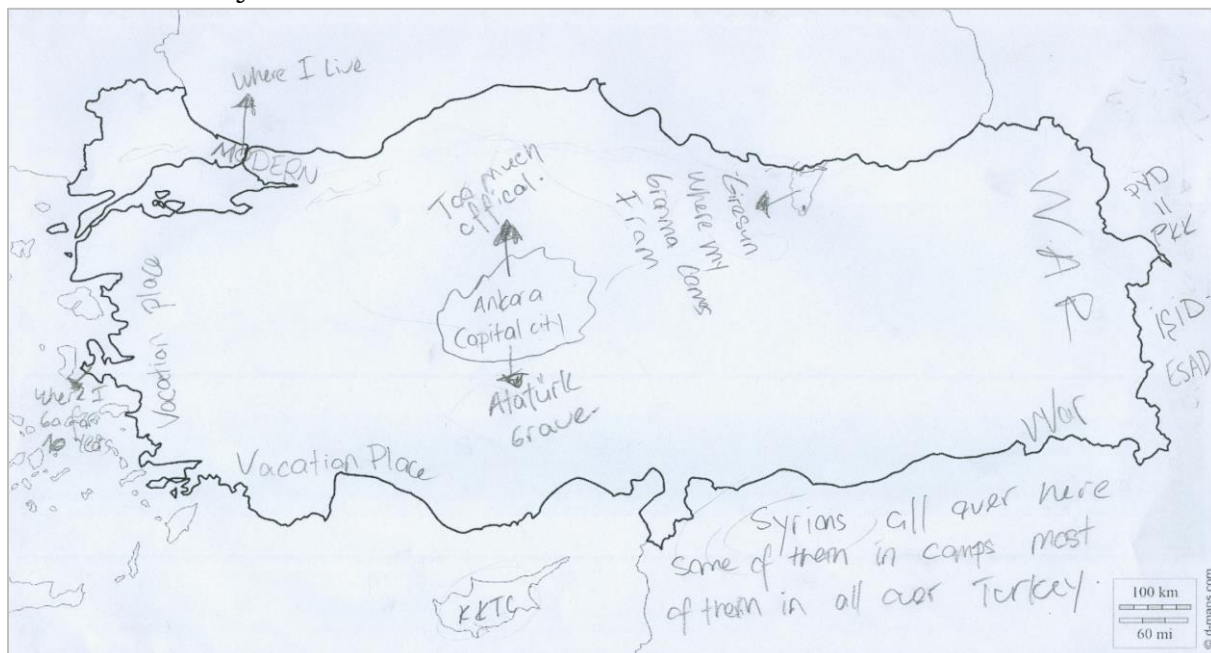 Where I Live
MODERN
Too much
offical.
Ankara
Capital city
Atatürk
Grave.
-Girasun
Where my
Granna comes
Fram
WAR
PYD
=
PKK
IŞID -
ESAD
War
Vacation place
Where I
Go after
10 Years
Vacation Place
KKTC
Syrians all over here
some of them in camps most
of them in all over Turkey.
100 km
60 mi
© d-maps.com